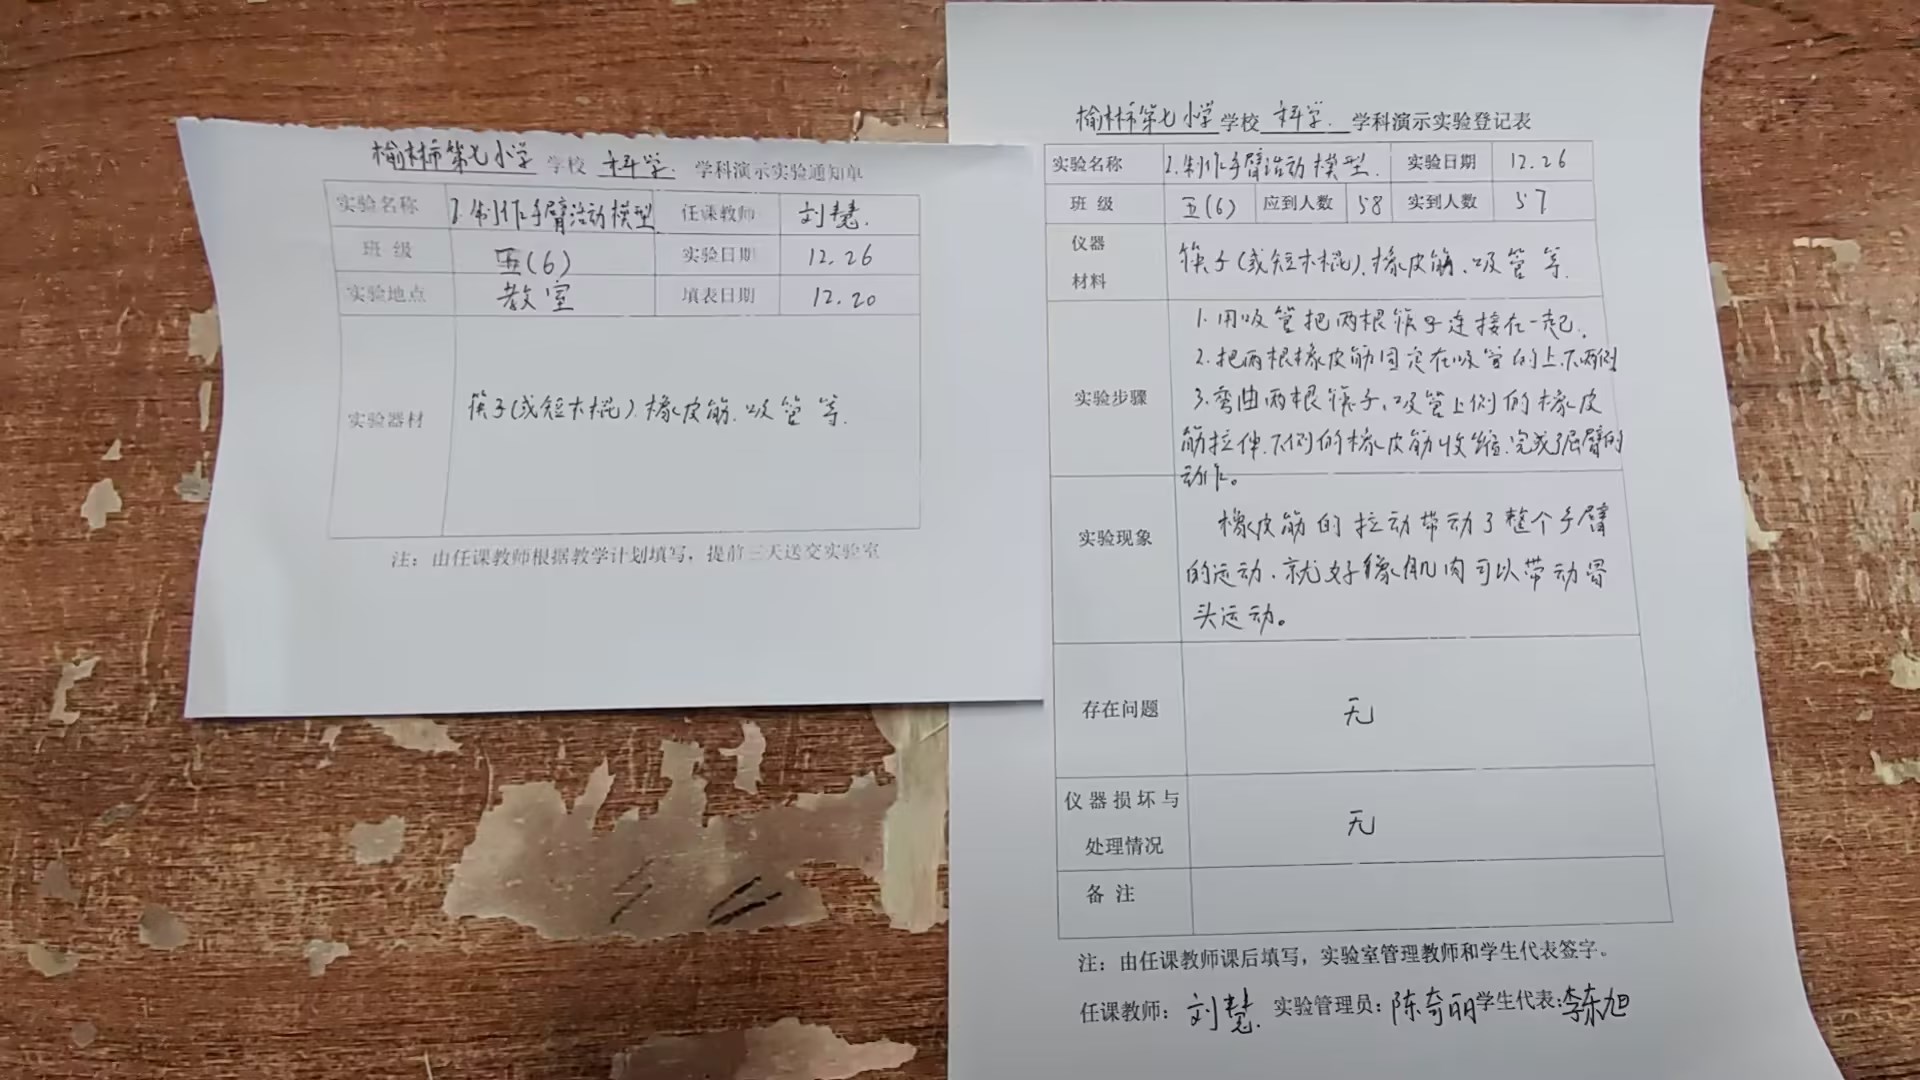 榆林市第七小学 学校 科学 学科演示实验通知单
实验名称 1.制作手臂活动模型 任课教师 刘慧.
班 级 五(6) 实验日期 12.26
实验地点 教室 填表日期 12.20
实验器材 筷子(或短木棍).橡皮筋.吸管等.
注：由任课教师根据教学计划填写，提前三天送交实验室
榆林市第七小学 学校 科学. 学科演示实验登记表
实验名称 1.制作手臂活动模型. 实验日期 12.26
班 级 五(6) 应到人数 58 实到人数 57
仪器
材料
筷子(或短木棍).橡皮筋、吸管等.
实验步骤
1.用吸管把两根筷子连接在一起.
2.把两根橡皮筋固定在吸管的上.下两侧
3.弯曲两根筷子、吸管上侧的橡皮
筋拉伸.下侧的橡皮筋收缩.完成了屈臂的
动作。
实验现象
橡皮筋的拉动带动了整个手臂
的运动.就好像肌肉可以带动骨
头运动。
存在问题 无
仪器损坏与
处理情况
无
备 注
注：由任课教师课后填写，实验室管理教师和学生代表签字。
任课教师：刘慧. 实验管理员：陈奇丽 学生代表：李东旭